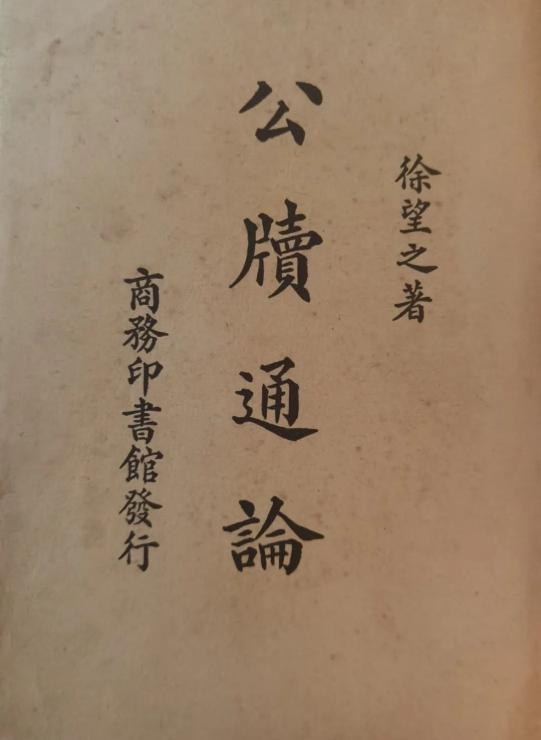 徐望之著
公牘通論
商務印書館發行